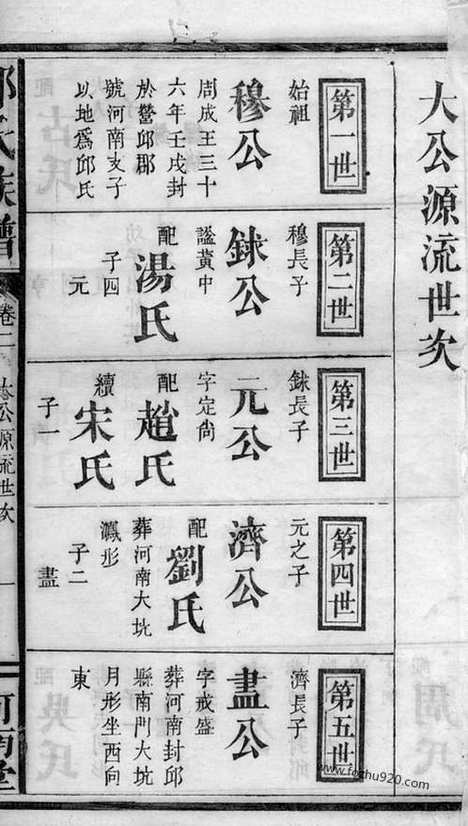 大公源流世次
第一世
始祖
穆公
周成王三十
六年壬戌封
於營邱郡
號河南支子
以地為邱氏
第二世
穆長子
銇公
謚黃中
配湯氏
子四
元
第三世
銇長子
元公
字定尙
配趙氏
續宋氏
子一
第四世
元之子
濟公
配劉氏
葬河南大坑
鳳形
子二
晝
第五世
濟長子
晝公
字戒盛
葬河南封邱
縣南門大坑
月形坐西向
東
氏族譜
卷一
公源流世次
一
河南堂
www.fozhu920.com